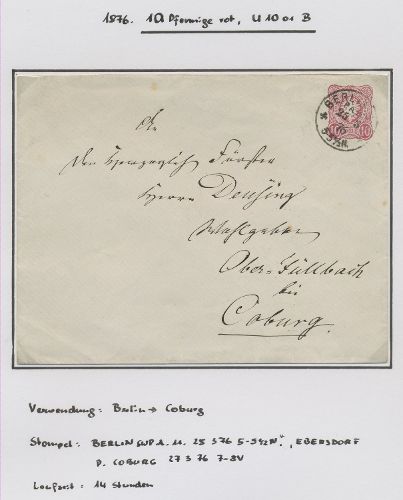 1876. 10 Pfennige rot, U 10 01 B
BERLIN
10
An
den Herzoglich Förster
Herrn Deusing
Wohlgeboren
Ober-Füllbach
bei
Coburg.
Verwendung: Berlin → Coburg
Stempel: BERLIN 25 3 76 5-5½N., EBERSDORF
P. COBURG 27 3 76 7-8V
Laufzeit: 14 Stunden